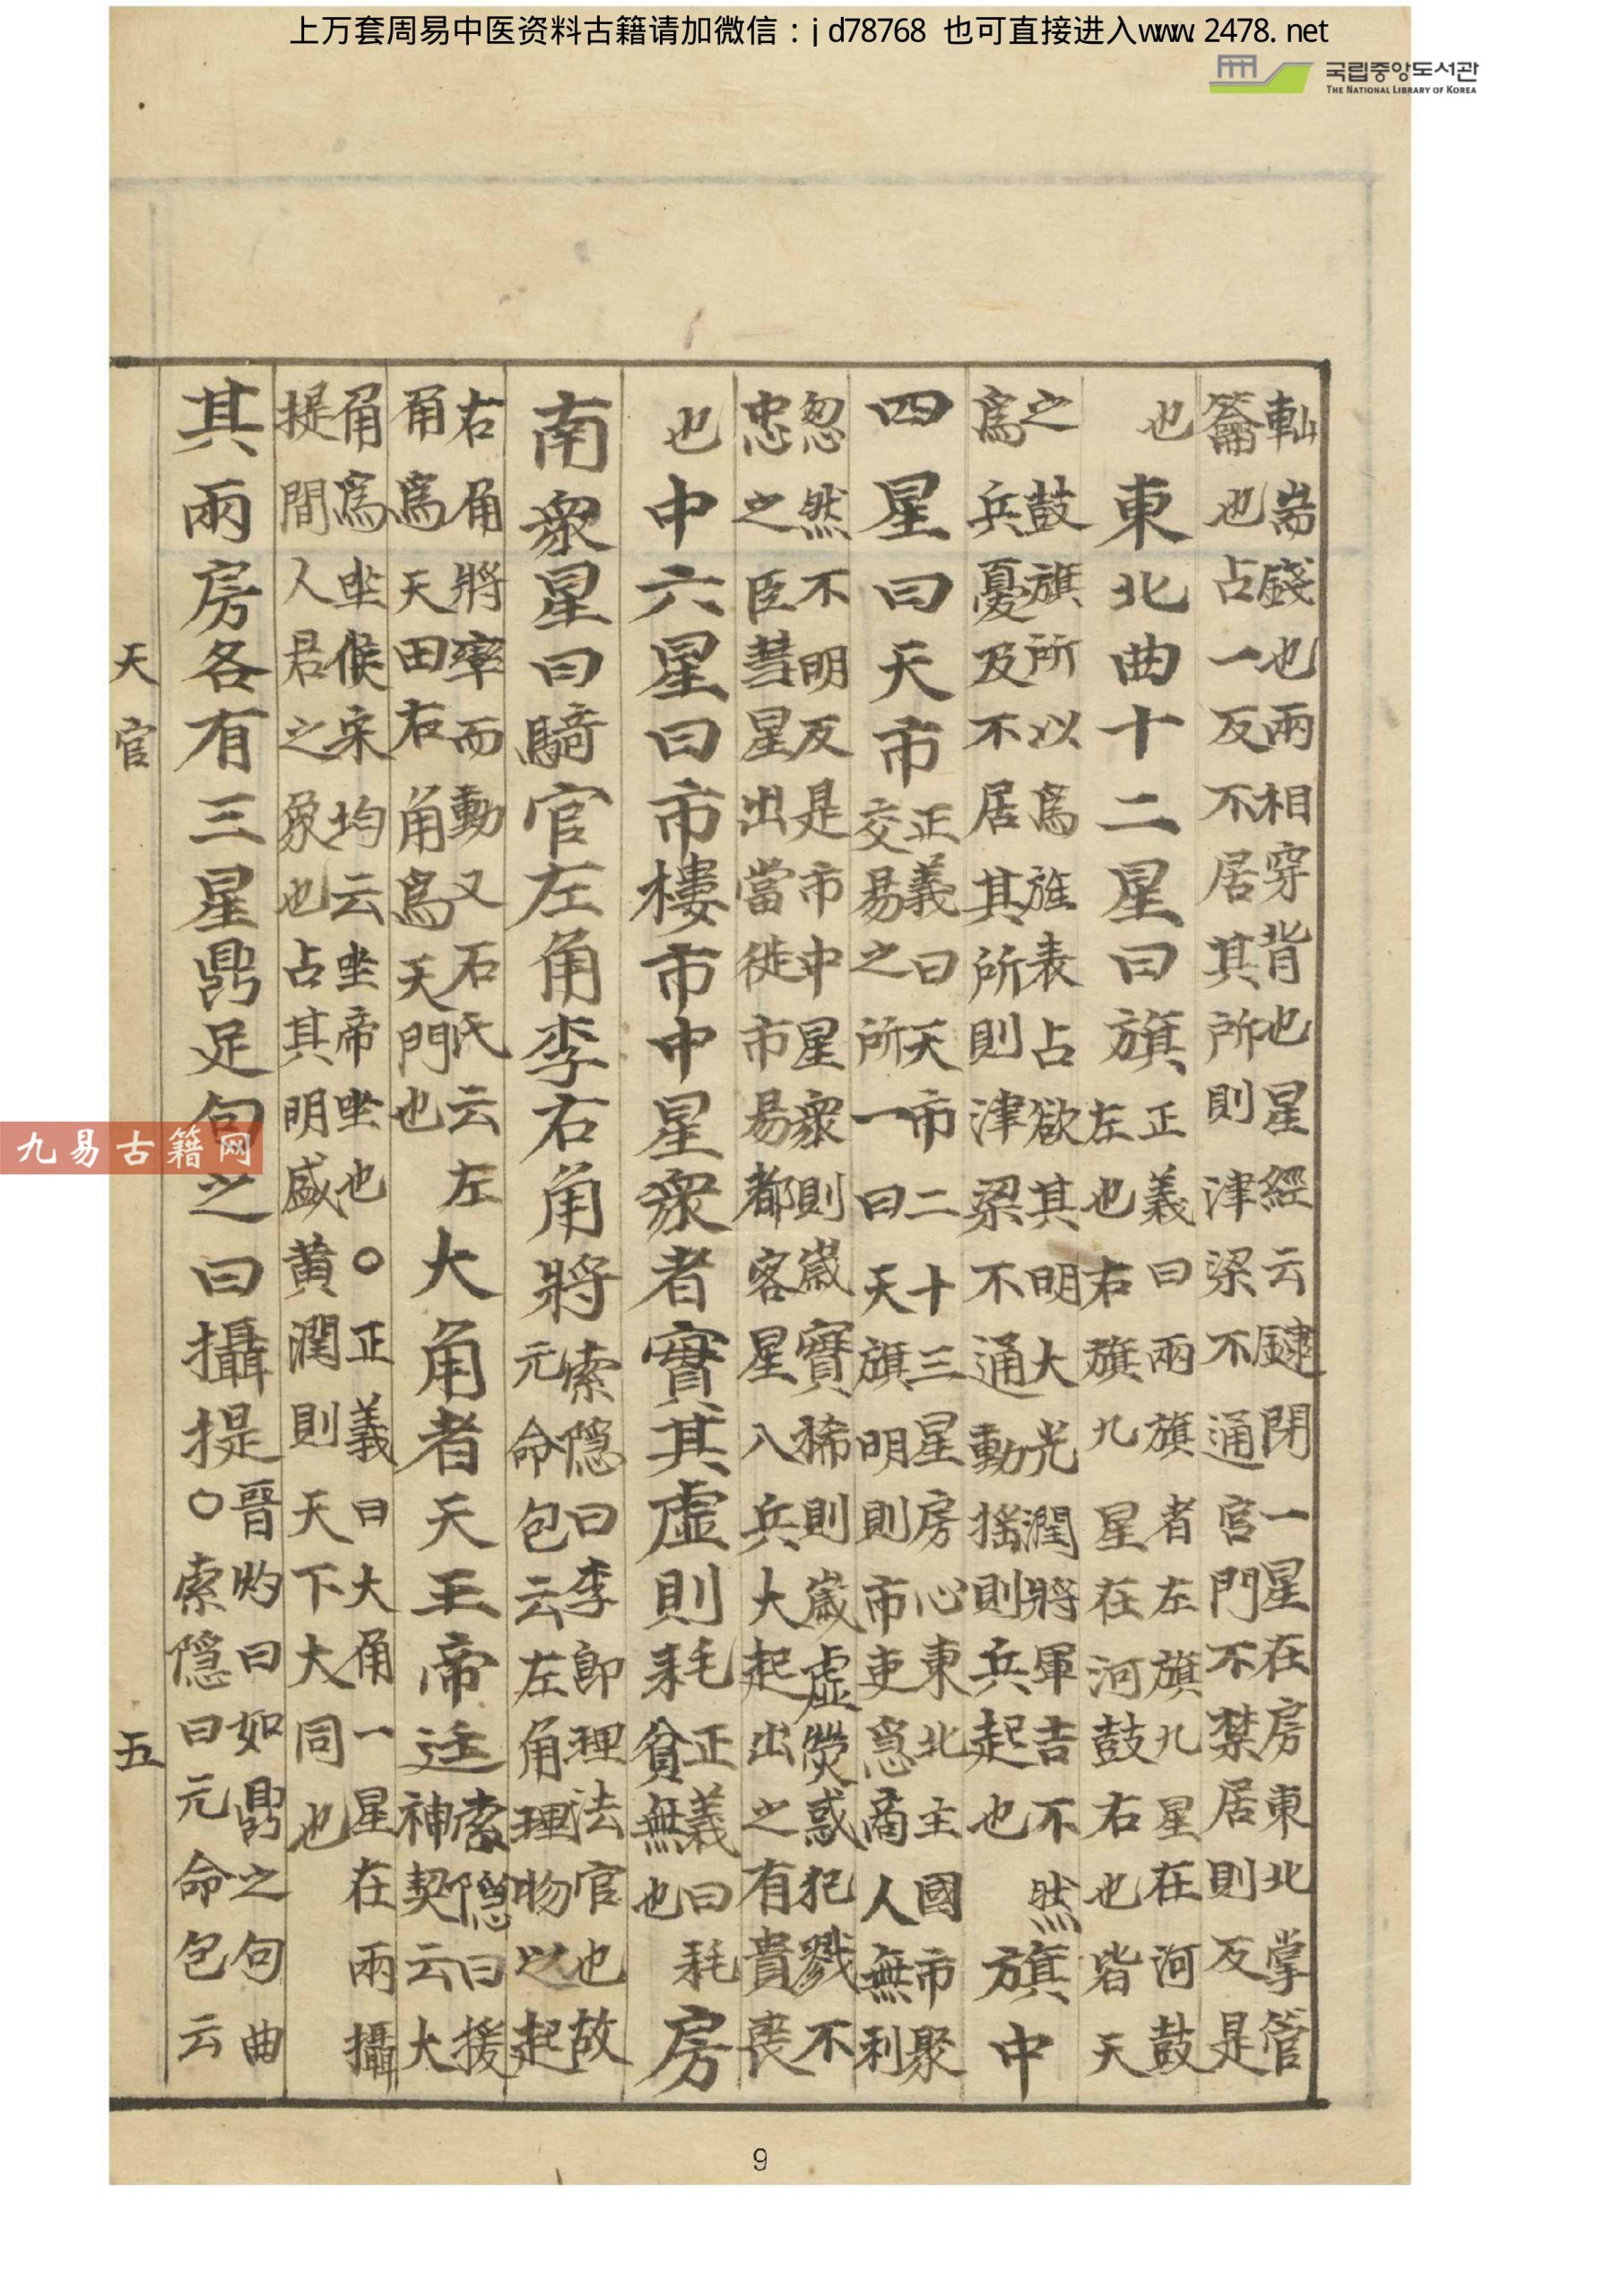 上万套周易中医资料古籍请加微信：jd78768 也可直接进入www.2478.net
국립중앙도서관
THE NATIONAL LIBRARY OF KOREA
耑錢也兩相穿背也星經云鍵閉一星在房東北掌管
籥也占一反不居其所則津梁不通宮門不禁居則反是
也東北曲十二星曰旗
正義曰兩旗者左旗九星在河鼓
左也右旗九星在河鼓右也皆天
之鼓旗所以爲旌表占欲其明大光潤將軍吉不然
爲兵憂及不居其所則津梁不通動搖則兵起也
旗中
四星曰天市
正義曰天市二十三星房心東北主國市聚
交易之所一曰天旗明則市吏急商人無利
忽然不明反是市中星衆則歲實稀則歲虛熒惑犯戮不
忠之臣彗星出當徙市易都客星入兵大起出之有貴喪
也中六星曰市樓市中星衆者實其虛則耗
正義曰耗
貧無也
房
南衆星曰騎官左角李右角將
索隱曰李即理法官也故
元命包云左角理物以起
右角將率而動又石氏云左
角爲天田右角爲天門也
大角者天王帝廷
索隱曰援
神契云大
角爲坐候宋均云坐帝坐也○正義曰大角一星在兩攝
提間人君之象也占其明盛黃潤則天下大同也
其兩房各有三星鼎足句之曰攝提
晉灼曰如鼎之句曲
○索隱曰元命包云
天官
五
九易古籍网
9